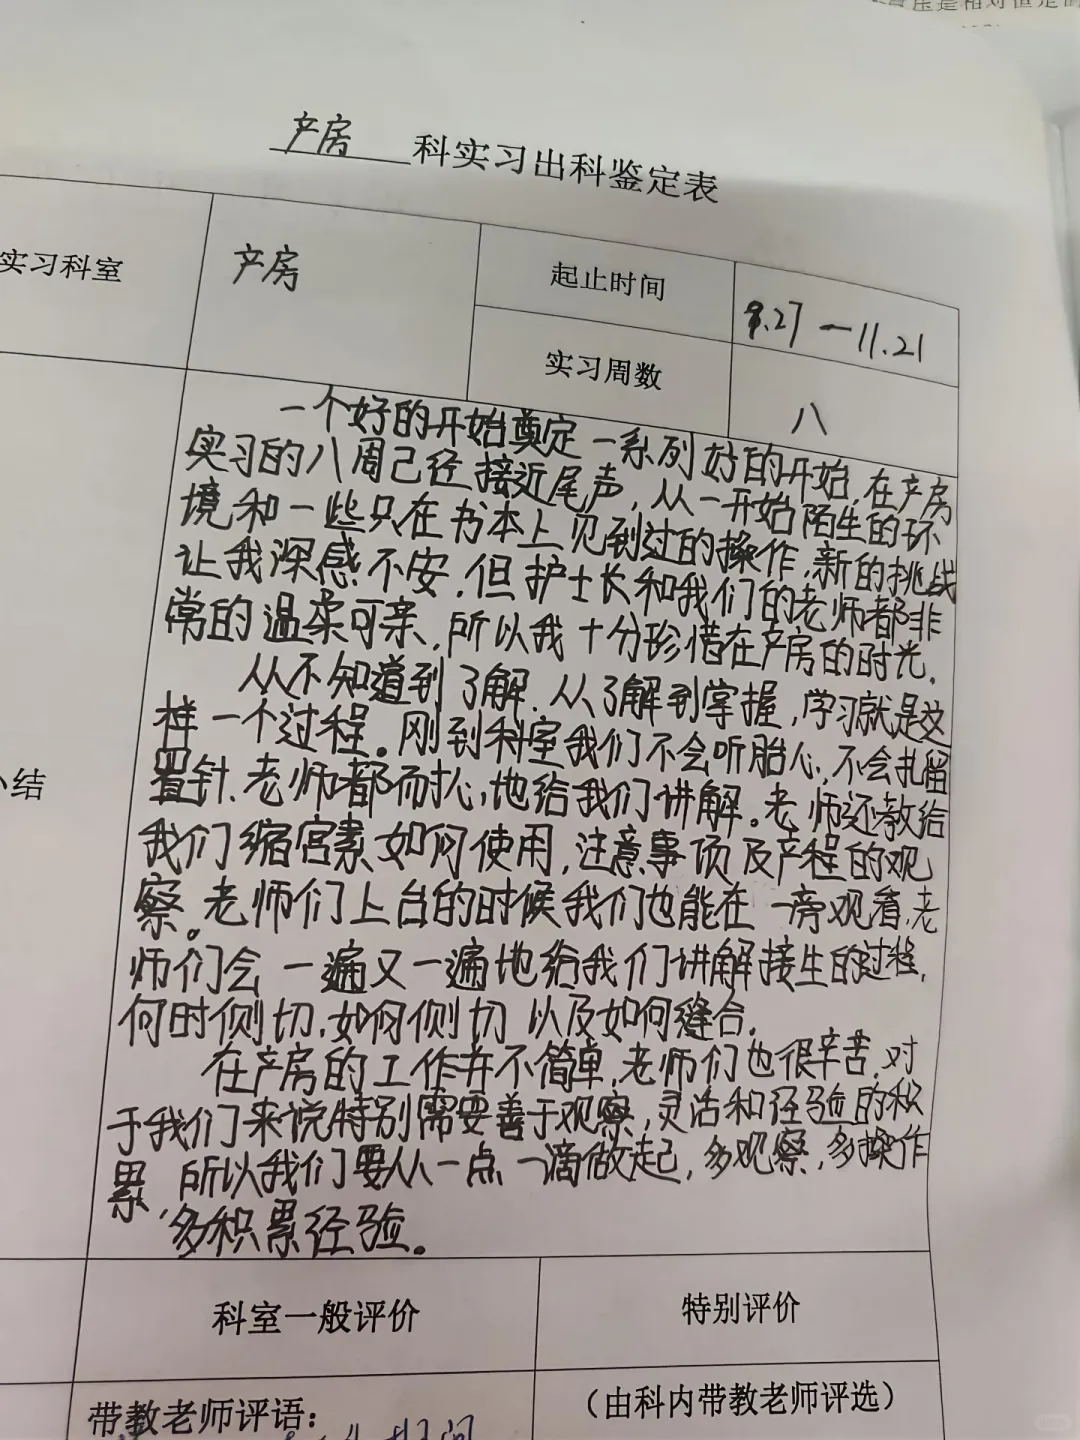 产房 科实习出科鉴定表
实习科室
产房
起止时间
9.27 一11.21
实习周数
八
小结
一个好的开始奠定一系列好的开始,在产房
实习的八周已经接近尾声,从一开始陌生的环
境和一些只在书本上见到过的操作,新的挑战
让我深感不安,但护士长和我们的老师都非
常的温柔可亲、所以我十分珍惜在产房的时光,
从不知道到了解.从了解到掌握,学习就是这
样一个过程。刚到科室我们不会听胎心,不会扎留
置针、老师都耐心地给我们讲解。老师还教给
我们缩宫素如何使用,注意事项及产程的观
察。老师们上台的时候我们也能在一旁观看,老
师们会一遍又一遍地给我们讲解接生的过程,
何时侧切,如何侧切 以及如何缝合.
在产房的工作并不简单,老师们也很辛苦,对
于我们来说特别需要善于观察,灵活和经验的积
累,所以我们要从一点一滴做起,多观察,多操作
,多积累经验。
科室一般评价
特别评价
带教老师评语:
(由科内带教老师评选)